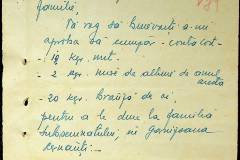 familia.
Vă rog să binevoiți a-mi
aproba să cumpăr - contra cost -
- 10 kgr. unt.
- 2 kgr. miere de albine de anul
acesta
- 20 kgr. brânză de oi
pentru a le duce la familia
subsemnatului, în garnizoana
Cernăuți. -